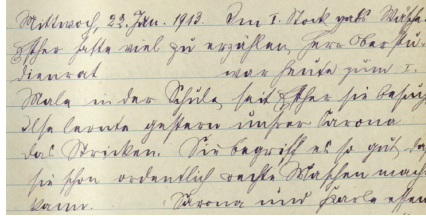 Mittwoch, 22. Jan. 1913. Im I. Stock gabs Wäsche.
Esther hatte viel zu erzählen, Herr Oberstu-
dienrat war heute zum 1.
Male in der Schule, seit Esther sie besucht
Ilse lernte gestern unsrer Sarona
das Stricken. Sie begriff es so gut, daß
sie schon ordentlich rechte Maschen mach
kann. Sarona und Karle essen